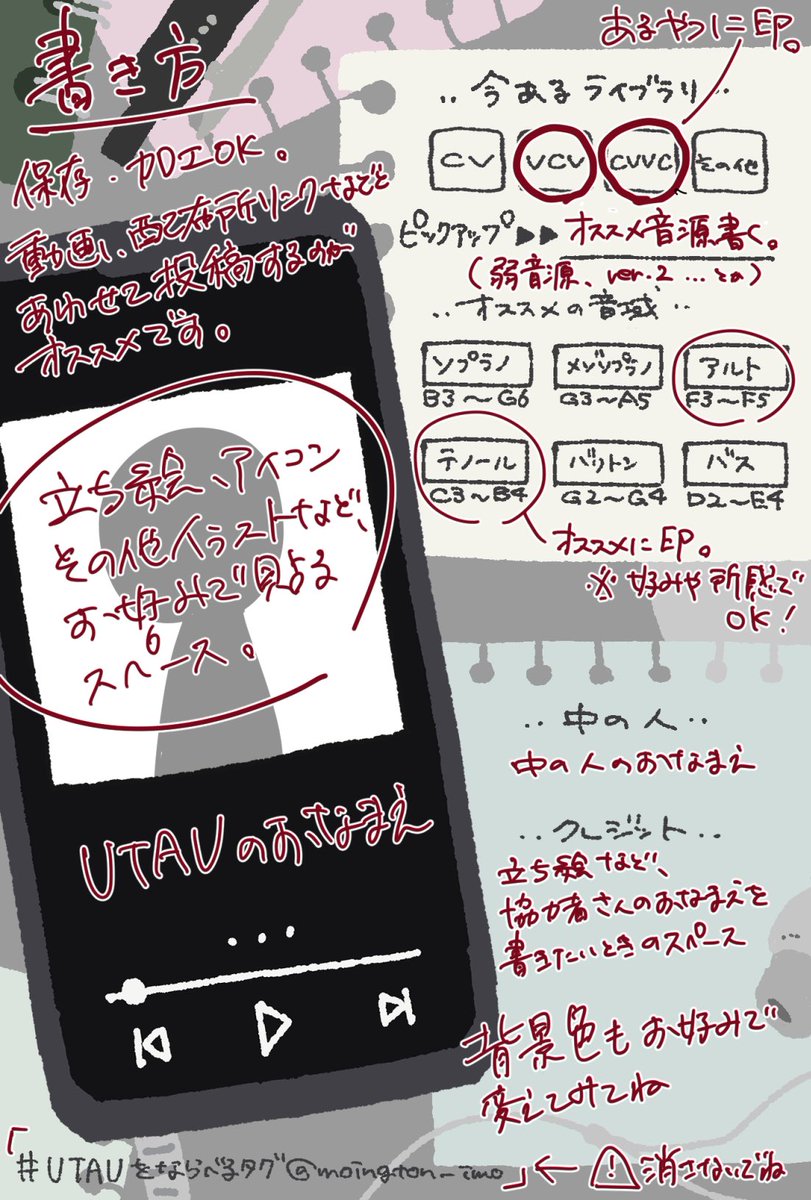 書き方
保存・加工OK。
動画や配布所リンクなどと
あわせて投稿するのが
オススメです。
立ち絵、アイコン
その他イラストなど、
お好みで貼る
スペース。
UTAUのおなまえ
...
あるやつに印。
‥今あるライブラリ‥
CV VCV CVVC その他
ピックアップ▶▶オススメ音源書く。
(弱音源、ver.2 ...とか)
‥オススメの音域‥
ソプラノ メゾソプラノ アルト
B3〜G6 G3〜A5 F3〜F5
テノール バリトン バス
C3〜B4 G2〜G4 D2〜E4
オススメに印。
※好みや所感で
OK!
‥中の人‥
中の人のおなまえ
‥クレジット‥
立ち絵など、
協力者さんのおなまえを
書きたいときのスペース
背景色もお好みで
変えてみてね
「#UTAUをならべるタグ@moington_imo」← ⚠消さないでね